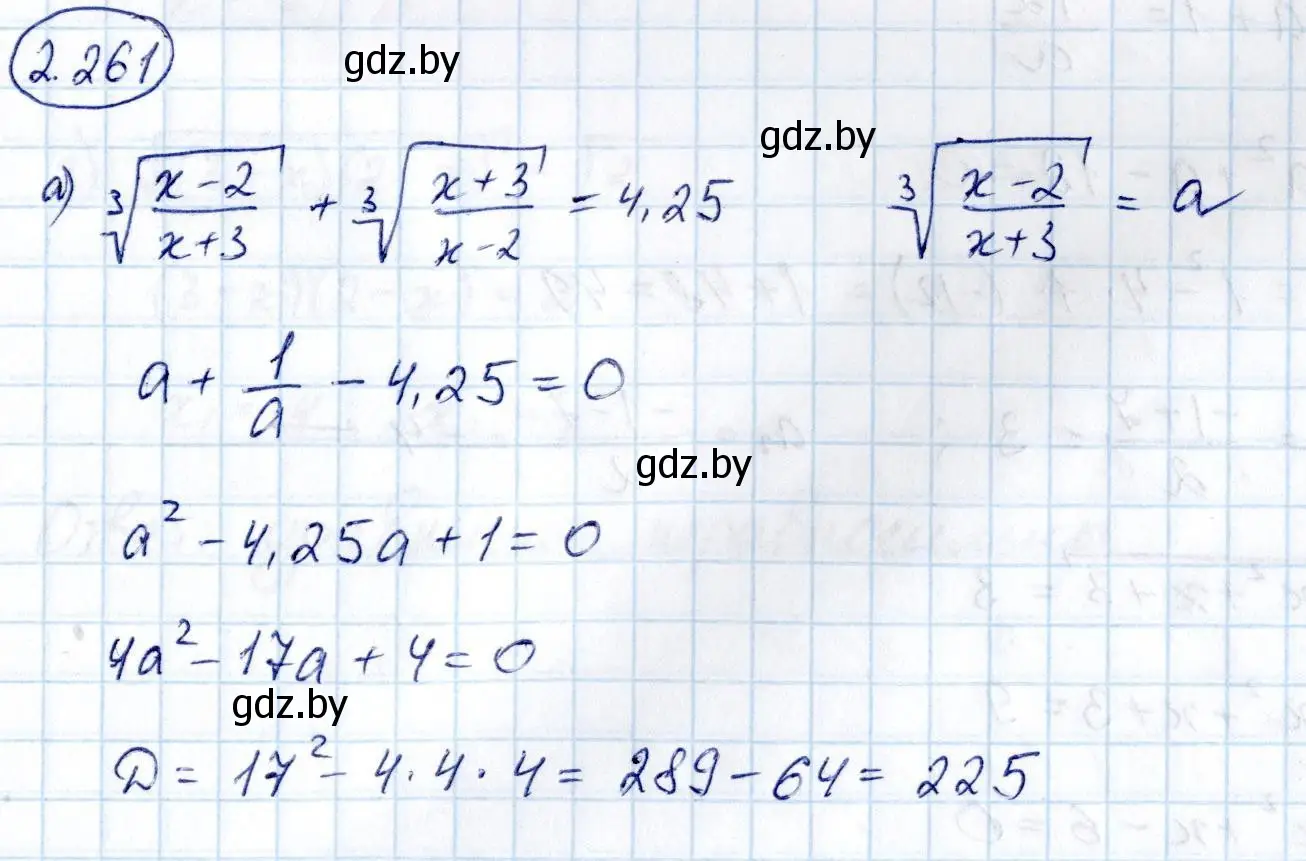 2.261
gdz.by
gdz.by
а) ∛((x-2)/(x+3)) + ∛((x+3)/(x-2)) = 4,25   ∛((x-2)/(x+3)) = a
a + 1/a - 4,25 = 0
gdz.by
a² - 4,25a + 1 = 0
4a² - 17a + 4 = 0
gdz.by
D = 17² - 4·4·4 = 289 - 64 = 225